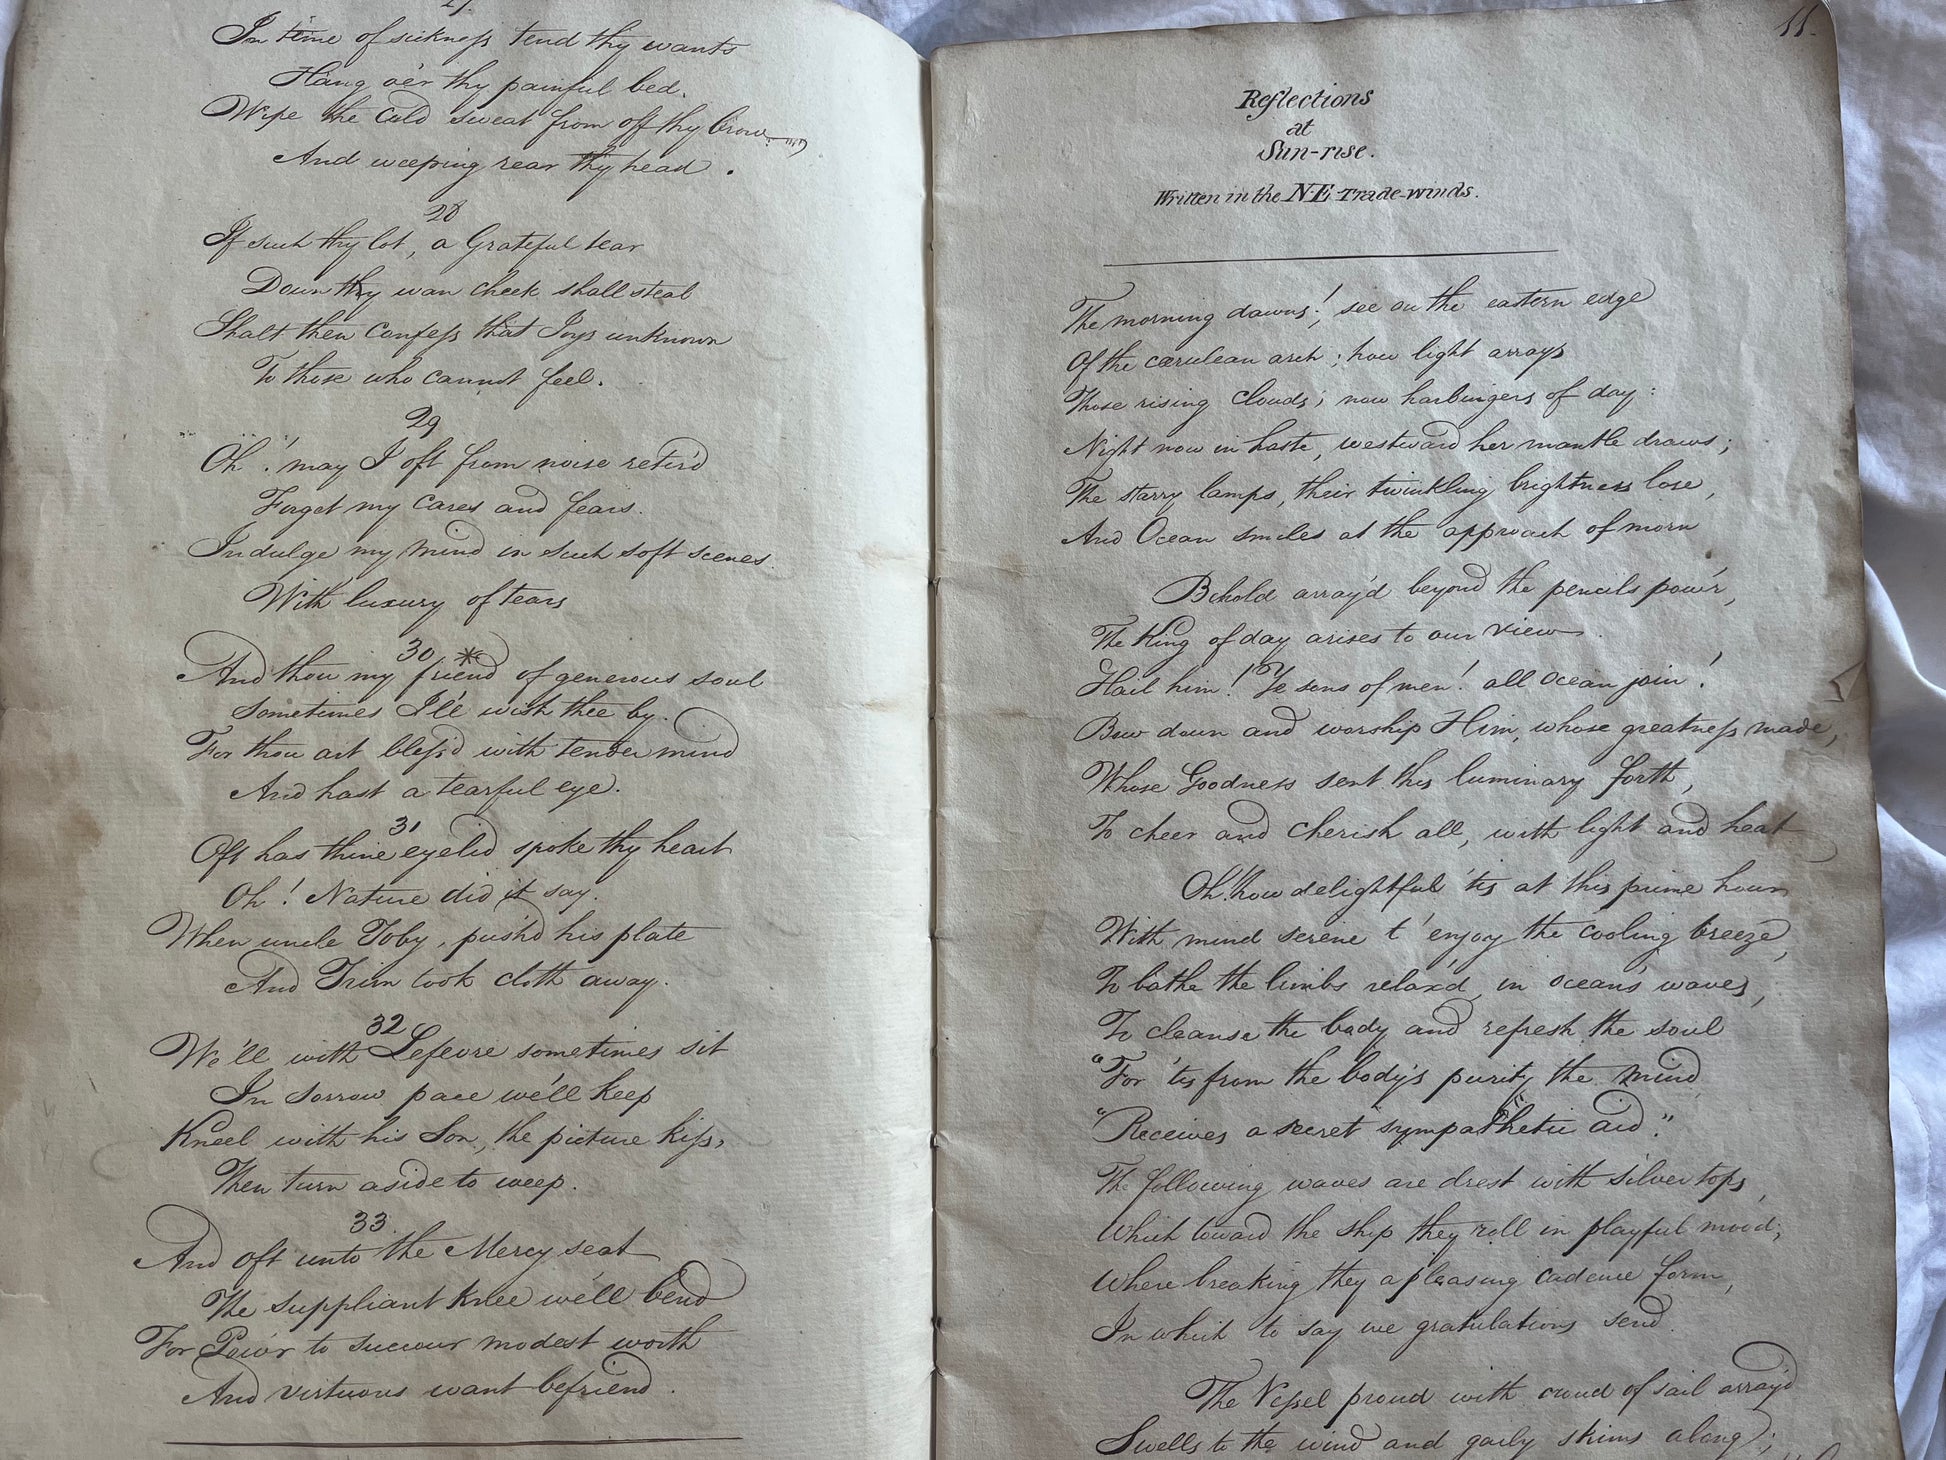 27.
In time of sickness tend thy wants
Hang oe'r thy painful bed.
Wipe the cold sweat from off thy brow
And weeping rear thy head.
28
If such thy lot, a Grateful tear
Down thy wan cheek shall steal
Shalt then confess that Joys unknown
To those who cannot feel.
29
Oh! may I oft from noise retir'd
Forget my cares and fears.
Indulge my mind in such soft scenes.
With luxury of tears
30 *
And thou my friend of generous soul
Sometimes I'le wish thee by.
For thou art bless'd with tender mind
And hast a tearful eye.
31
Oft has thine eyelid spoke thy heart
Oh! Nature did it say.
When uncle Toby, push'd his plate
And Trim took cloth away.
32
We'll with Lefevre sometimes sit
In sorrow pace we'll keep
Kneel with his Son, the picture kiss,
Then turn aside to weep.
33.
And oft unto the Mercy seat
The suppliant knee we'll bend
For Pow'r to succour modest worth
And virtuous want befriend.
11.
Reflections
at
Sun-rise.
Written in the NE Trade-winds.
The morning dawns!, see on the eastern edge
Of the cærulean arch; how light arrays
Those rising Clouds; now harbingers of day:
Night now in haste, westward her mantle draws;
The starry lamps, their twinkling brightness lose,
And Ocean smiles at the approach of morn
Behold array'd beyond the pencils pow'r,
The King of day arises to our view.
Hail him! Ye sons of men! all Ocean join!
Bow down and worship Him, whose greatness made,
Whose Goodness sent this luminary forth,
To cheer and cherish all, with light and heat
Oh! how delightful 'tis at this prime hour
With mind serene t'enjoy the cooling breeze,
To bathe the limbs relax'd in ocean's waves,
To cleanse the body and refresh the soul
"For 'tis from the body's purity the mind
"Receives a secret sympathetic aid."
The following waves are drest with silver tops,
Which toward the ship they roll in playful mood;
Where breaking they a pleasing cadence form,
In which to say we gratulations send.
The Vessel proud with crowd of sail array'd
Swells to the wind and gaily skims along;